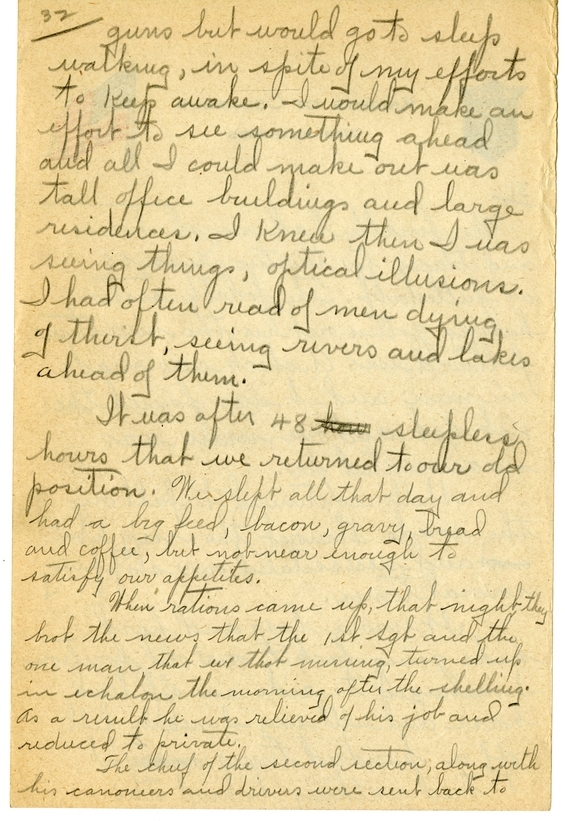 32
guns but would go to sleep
walking, in spite of my efforts
to keep awake. I would make an
effort to see something ahead
and all I could make out was
tall office buildings and large
residences. I knew then I was
seeing things, optical illusions.
I had often read of men dying
of thirst, seeing rivers and lakes
ahead of them.
It was after 48 sleepless
hours that we returned to our old
position. We slept all that day and
had a big feed, bacon, gravy, bread
and coffee, but not near enough to
satisfy our appetites.
When rations came up, that night they
brot the news that the 1st sgt and the
one man that we thot missing, turned up
in echalon the morning after the shelling.
As a result he was relieved of his job and
reduced to private.
The chief of the second section, along with
his canoneers and drivers were sent back to